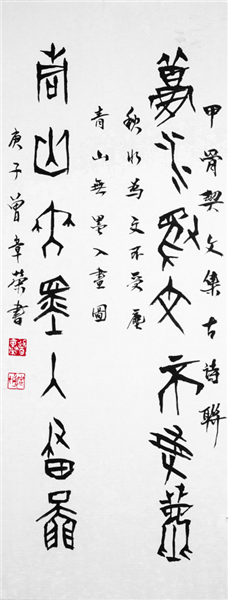 甲骨契文集古詩聯
秋水為文不受塵
秋水為文不受塵
青山無墨入畫圖
青山無墨入畫圖
庚子曾章榮書